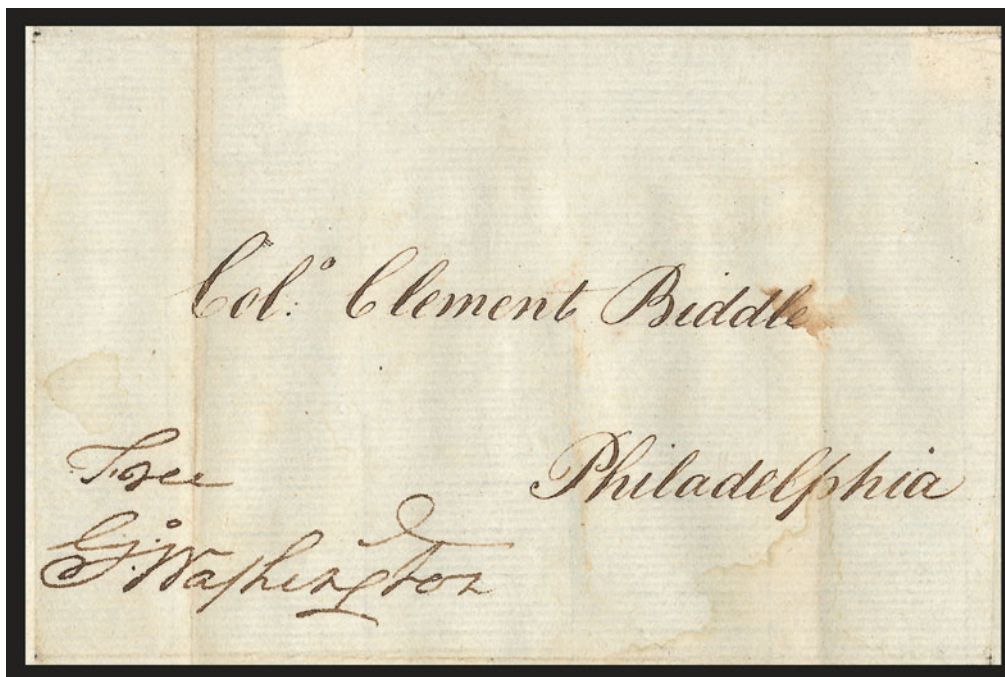 Col:° Clement Biddle
Philadelphia
Free
G:° Washington